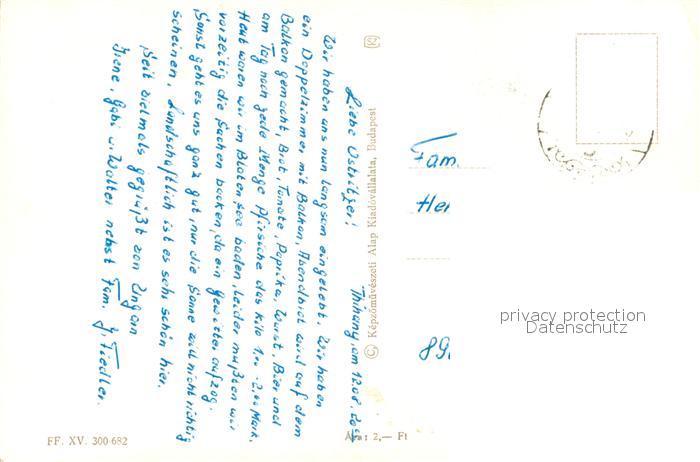 Liebe Ostritzer! Thihany, am 12.08.
Wir haben uns nun langsam eingelebt. Wir haben
ein Doppelzimmer mit Balkon, Abendbrot wird auf dem
Balkon gemacht, Brot, Tomate, Paprika, Wurst, Bier und
am Tag noch jede Menge Pfirsiche das Kilo 1,- - 2,00 Mark.
Heut waren wir im Blatensee baden, leider mußten wir
vorzeitig die Sachen packen, da ein Gewitter aufzog.
Sonst geht es uns ganz gut, nur die Sonne will nicht richtig
scheinen. Landschaftlich ist es sehr schön hier.
Seit vielmals gegrüßt von Ungarn
Irene, Gabi u. Walter nebst Fam. J. Fiedler.
© Képzőművészeti Alap Kiadóvállalata, Budapest
Fam.
Her
89
privacy protection
Datenschutz
FF. XV. 300-682
Ára: 2,— Ft